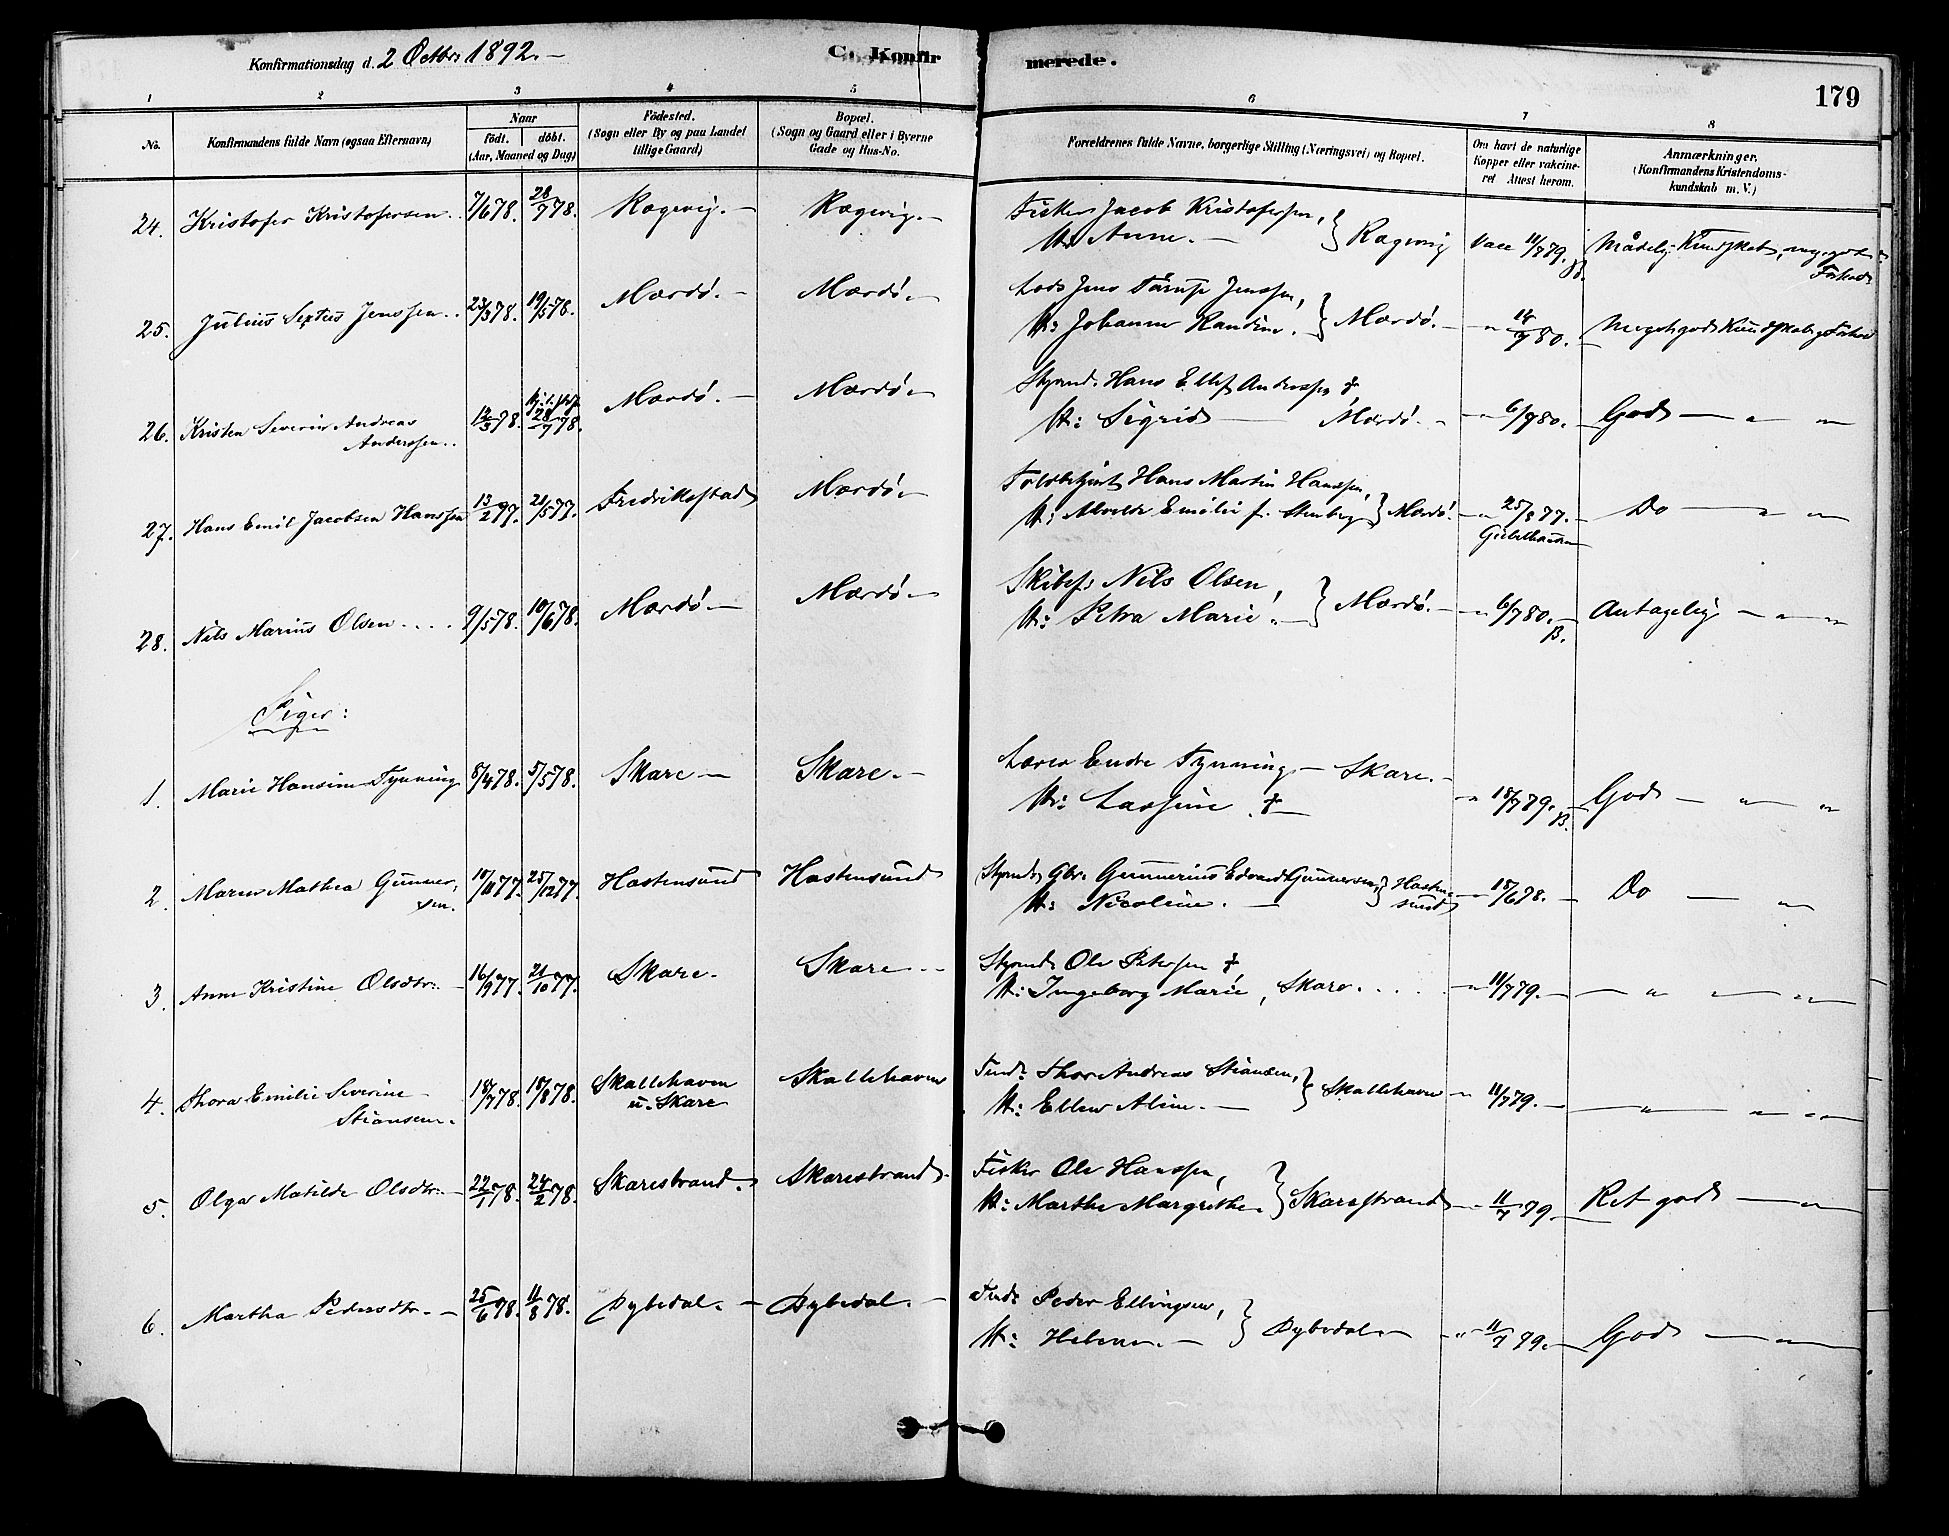 Konfirmationsdag d. 2 Octbr: 1892. –
C. Konfirmerede.
179
1 2 3 4 5 6 7 8
No.
Konfirmandens fulde Navn (ogsaa Efternavn)
Naar
født. døbt.
(Aar, Maaned og Dag)
Fødested.
(Sogn eller By og paa Landet
tillige Gaard)
Bopæl.
(Sogn og Gaard eller i Byerne
Gade og Hus-No.
Forældrenes fulde Navne, borgerlige Stilling (Næringsvei) og Bopæl.
Om havt de naturlige
Kopper eller vakcine-
ret Attest herom.
Anmærkninger.
(Konfirmandens Kristendoms-
kundskab m. V.)
24. Kristofer Kristofersen. 7/6 78. 28/7 78. Ragevig. – Ragevig. – Fisker Jacob Kristofersen,
H: Anne. – } Ragevig Vacc 11/7 79. Mådelig Kundskab, meget god
Forhold
25. Julius Sextus Jenssen. 23/3 78. 19/5 78. Mærdø. – Mærdø – Lods Jens Tårup Jenssen,
H: Johanne Randine. } Mærdø. – " 14/7 80. Meget god Kundskab og Forhold
26. Kristen Severin Andreas
Anderssen. 12/3 78. 28/7 78. Mærdø. – Mærdø – Styrmd. Hans Ellef Anderssen †
H: Sigrid – Mærdø. – " 6/7 80. – God – " "
27. Hans Emil Jacobsen Hanssen 13/2 77. 21/5 77. Fredriksstad Mærdø – Toldbetjent Hans Martin Hanssen,
H: Alvilde Emilie f. Stenberg } Mærdø. – " 25/8 77. – Do – " "
28. Nils Marius Olsen. . . . 9/5 78. 10/6 78. Mærdø – Mærdø – Skibsf: Nils Olsen,
H: Petra Marie. – } Mærdø. – " 6/7 80. – Antagelig – " "
B.
Piger:
1. Marie Hansine Tynning 8/4 78. 5/5 78. Skare – Skare. – Lærer Endre Tynning – Skare. –
H: Lassine † – " 18/7 79. God – " "
B.
2. Maren Mathea Gunner-
sen. 10/11 77. 25/12 77. Hastensund Hastensund Styrmd. Gbr. Gunnerius Edvard Gunnersen,
H: Nicoline. – } Hasten-
sund – " 18/6 78. – Do – "
3. Anne Kristine Olsdtr. – 16/9 77. 21/10 77. Skare. Skare. – Styrmd. Ole Petersen †
H: Ingeborg Marie, Skare. . . . – " 11/7 79. – – " " "
4. Thora Emilie Severine
Stiansen. 18/7 78. 18/8 78. Skallehaven
u. Skare Skallehaven Tmd: Thor Andreas Stiansen,
H: Ellen Aline. – } Skallehaven – " 11/7 79. – – " " "
5. Olga Matilde Olsdtr. – 22/1 78. 24/2 78. Skarestrand. Skarestrand. Fisker Ole Hanssen,
H: Marthe Margrethe. } Skarestrand – " 11/7 79. – Ret god – "
6. Martha Pedersdtr. – 25/6 78. 11/8 78. Dybedal. – Dybedal. – Tmd: Peder Ellingsen,
H: Helene. – } Dybedal. – " 11/7 79. – God – "